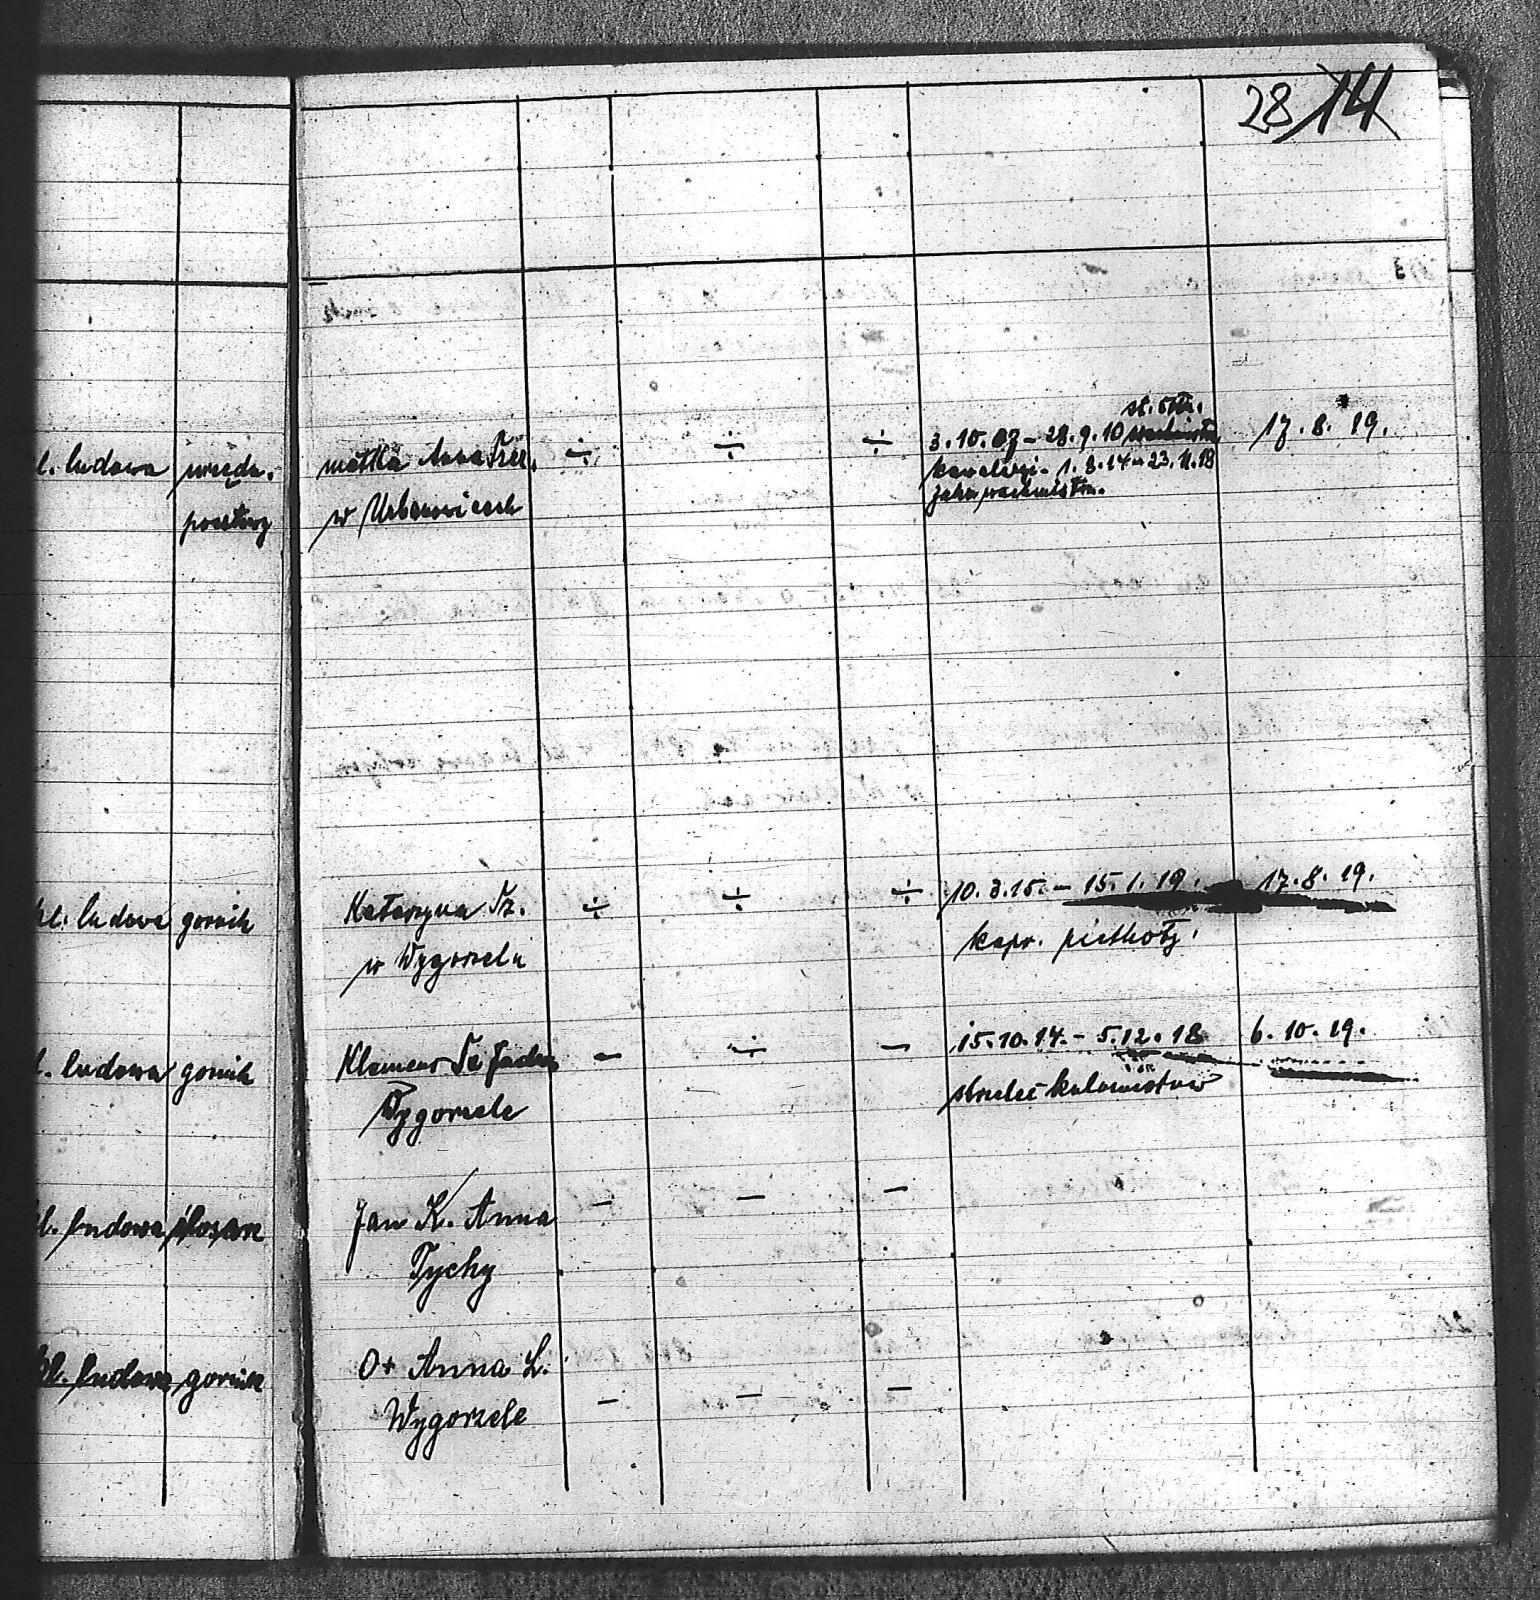 28 14
st. strz.
ł. ludowa urzędn. matka Anna ÷ ÷ ÷ 3.10.07 – 28.9.10 17.8.19.
pocztowy w Urbanowicach kawalerji – 1.8.14 – 23.11.18
jako wachmistrz.
zł. ludowa gornik Katarzyna Sz. ÷ ÷ ÷ 10.3.15. – 15.1.19. 17.8.19.
w Wygorzelu kapr. piechoty.
ł. ludowa gornik Klemens – ÷ – 15.10.17. – 5.12.18 6.10.19.
Wygorzele strzelec
ł. ludowa ślosarz Jan K. Anna – – –
Tychy
ł. ludowa gornik O+ Anna L. – – –
Wygorzele